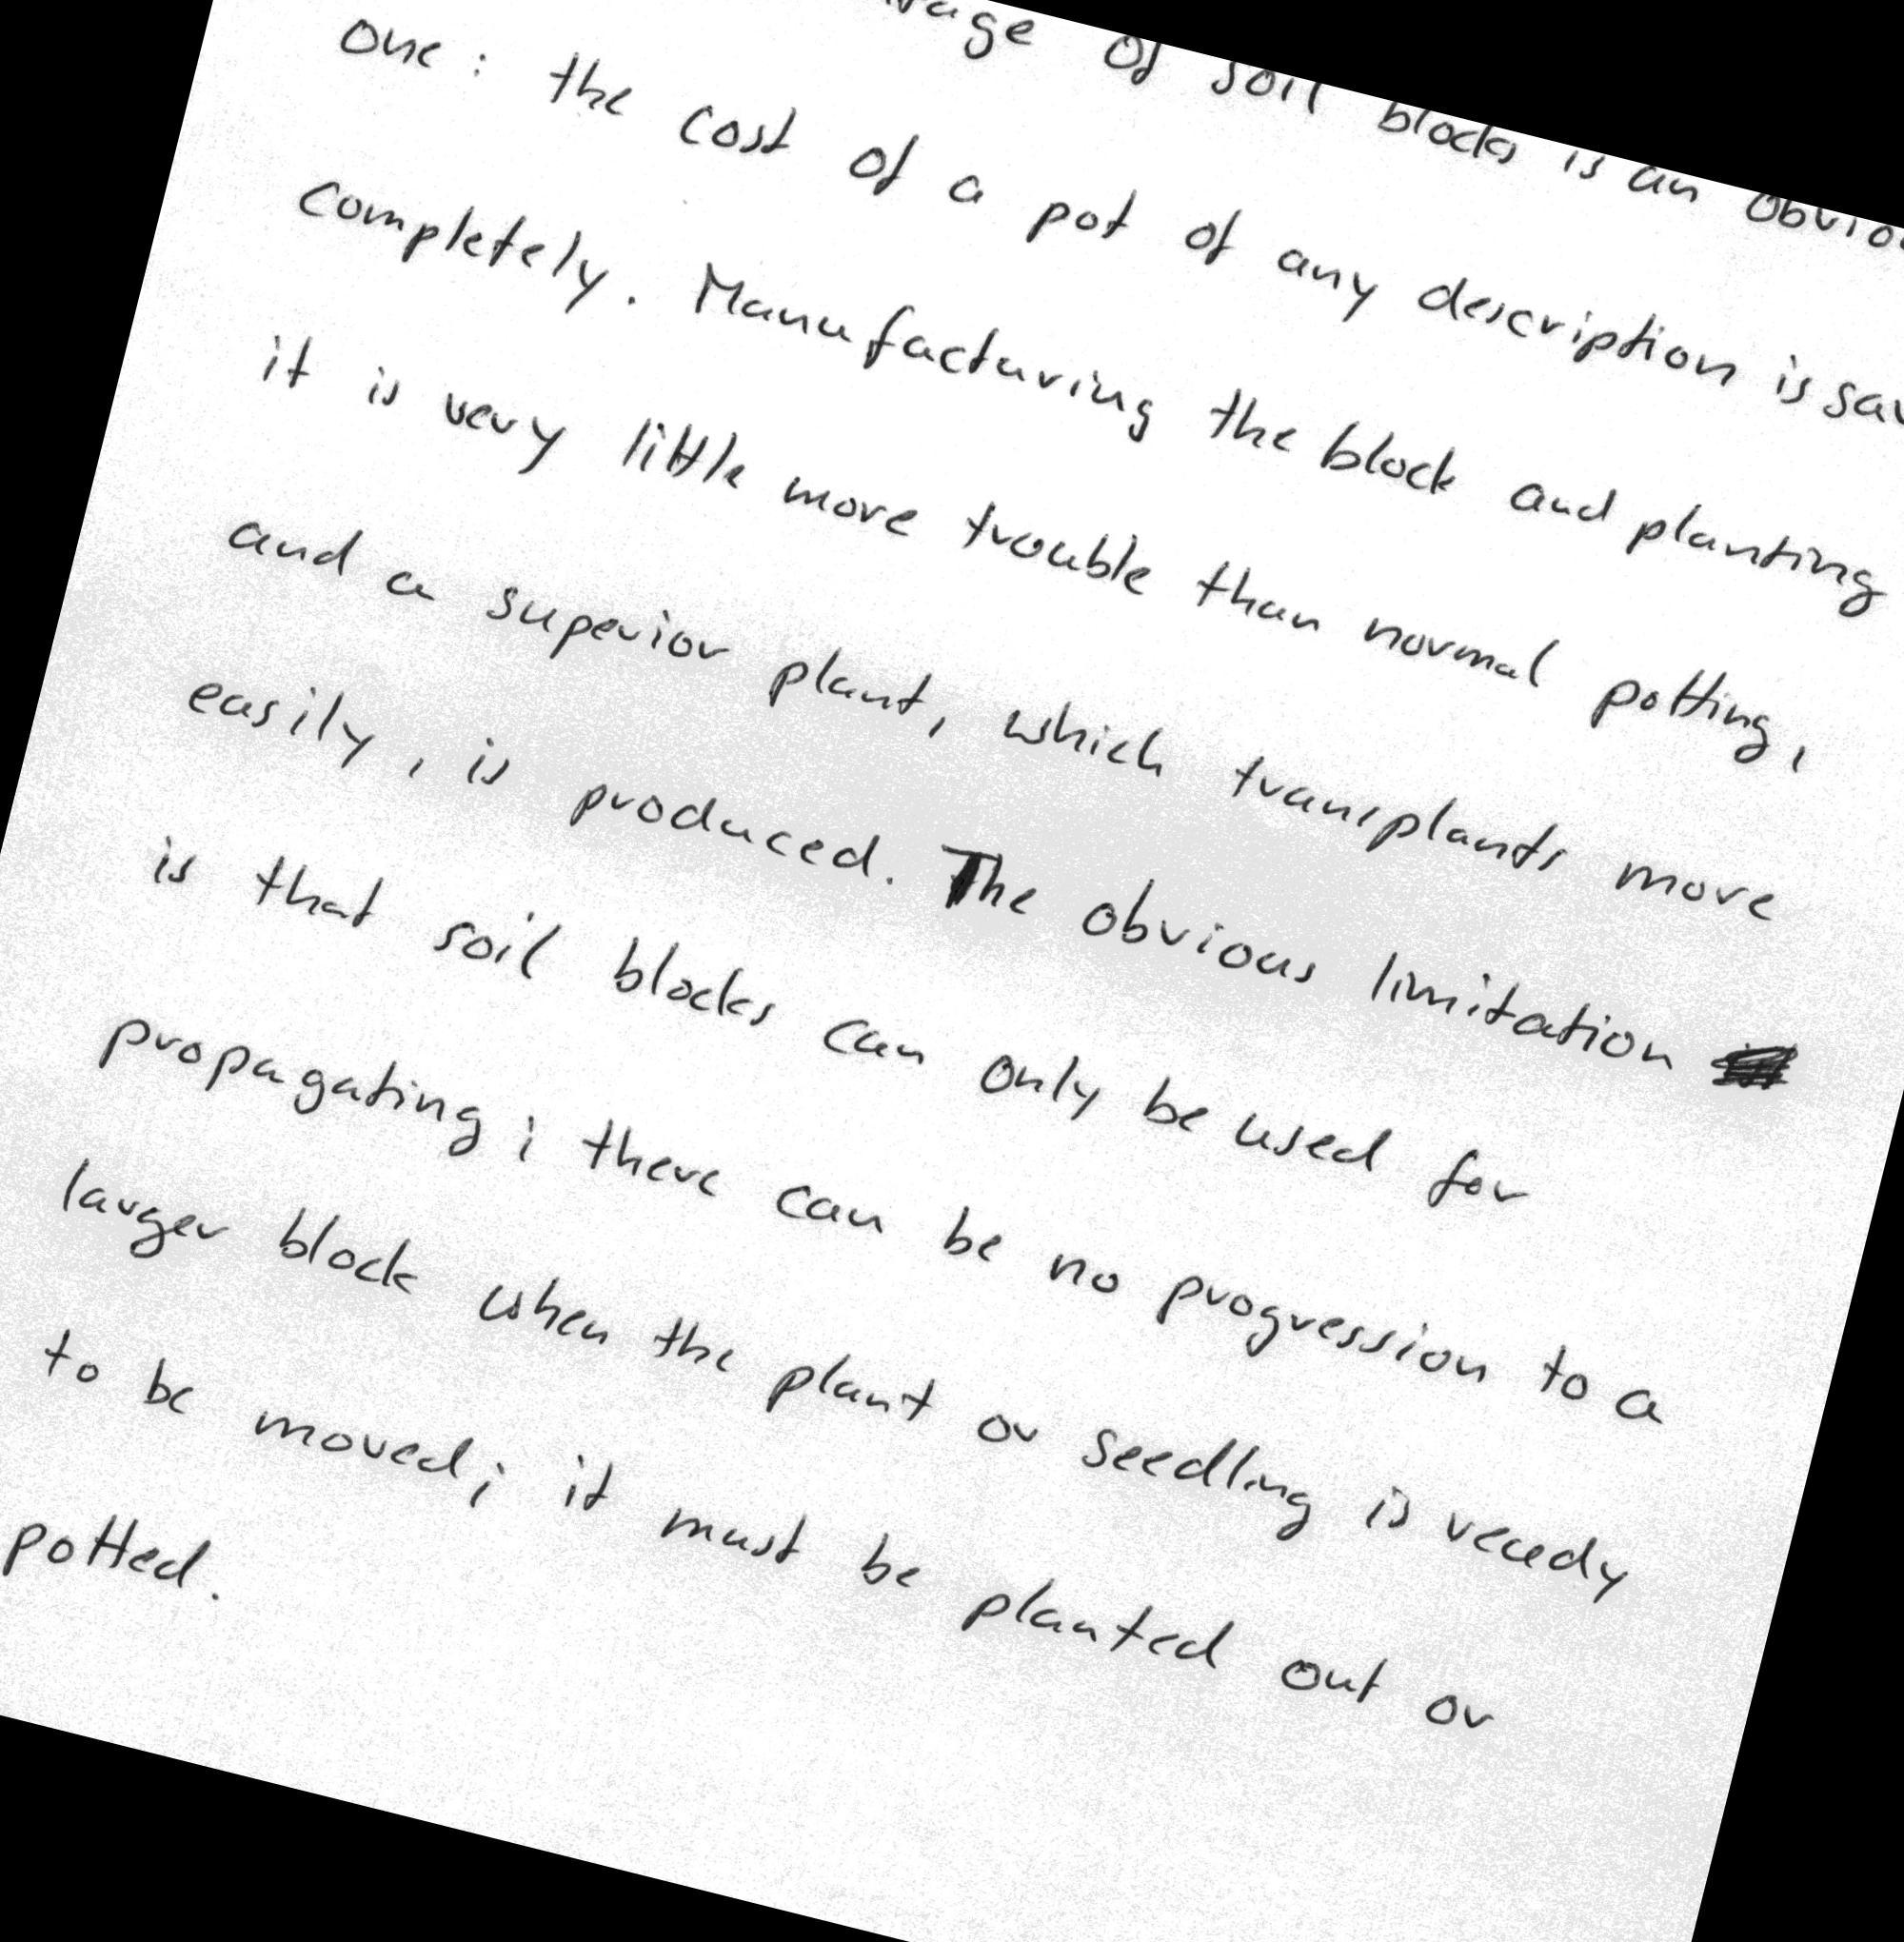 of soil blocks is an
one : the cost of a pot of any description is
completely. Manufacturing the block and planting
it is very little more trouble than normal potting,
and a superior plant, which transplants more
easily, is produced. The obvious limitation
is that soil blocks can only be used for
propagating; there can be no progression to a
larger block when the plant or seedling is ready
to be moved; it must be planted out or
potted.